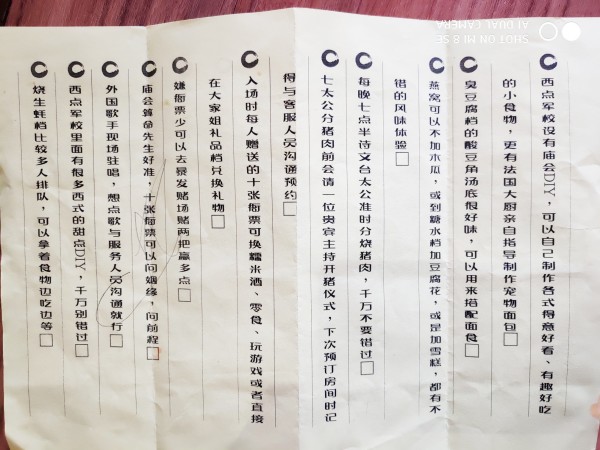 西点军校设有庙会DIY，可以自己制作各式得意好看、有趣好吃
的小食物，更有法国大厨亲自指导制作宠物面包□
臭豆腐档的酸豆角汤底很好味，可以用来搭配面食□
燕窝可以不加木瓜，或到糖水档加豆腐花，或是加雪糕，都有不
错的风味体验□
每晚七点半诗文台太公准时分烧猪肉，千万不要错过□
七太公分猪肉前会请一位贵宾主持开猪仪式，下次预订房间时记
得与客服人员沟通预约□
入场时每人赠送的十张每票可换糯米酒、零食、玩游戏或者直接
在大家姐礼品档兑换礼物□
嫌每票少可以去暴发赌场赌两把赢多点□
庙会算命先生好准，十张每票可以问姻缘，问前程□
外国歌手现场驻唱，想点歌与服务人员沟通就行□
西点军校里面有很多西式的甜点DIY，千万别错过□
烧生蚝档比较多人排队，可以拿着食物边吃边等□
SHOT ON MI 8 SE
AI DUAL CAMERA